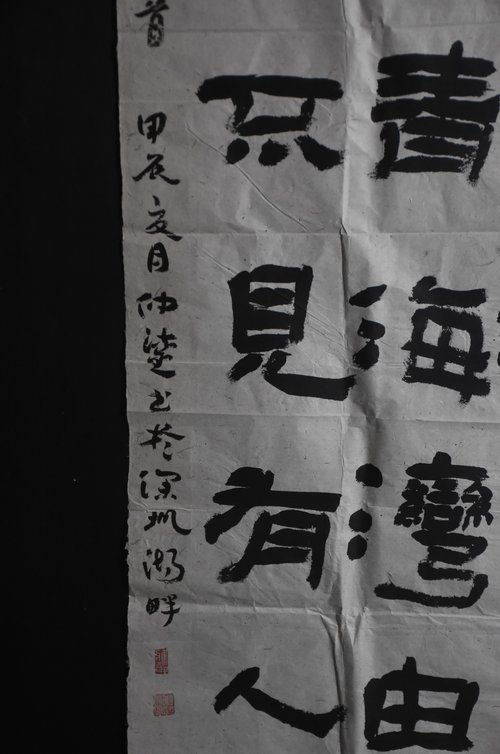 青海灣由
不見有人
首 甲辰夏月仲 书於深圳湖畔